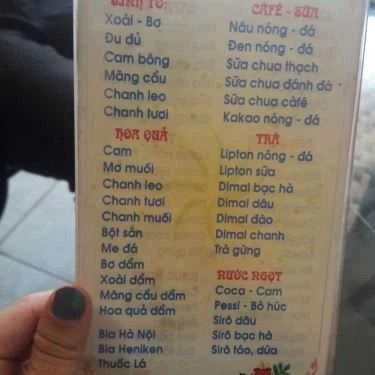 SINH TỐ
Xoài - Bơ
Đu đủ
Cam bông
Mãng cầu
Chanh leo
Chanh tươi
HOA QUẢ
Cam
Mơ muối
Chanh leo
Chanh tươi
Chanh muối
Bột sắn
Me đá
Bơ dầm
Xoài dầm
Mãng cầu dầm
Hoa quả dầm
Bia Hà Nội
Bia Heniken
Thuốc Lá
CAFÉ - SỮA
Nâu nóng - đá
Đen nóng - đá
Sữa chua thạch
Sữa chua đánh đá
Sữa chua càfê
Kakao nóng - đá
TRÀ
Lipton nóng - đá
Lipton sữa
Dimal bạc hà
Dimal dâu
Dimal đào
Dimal chanh
Trà gừng
NƯỚC NGỌT
Coca - Cam
Pessi - Bò húc
Sirô dâu
Sirô bạc hà
Sirô táo, dừa